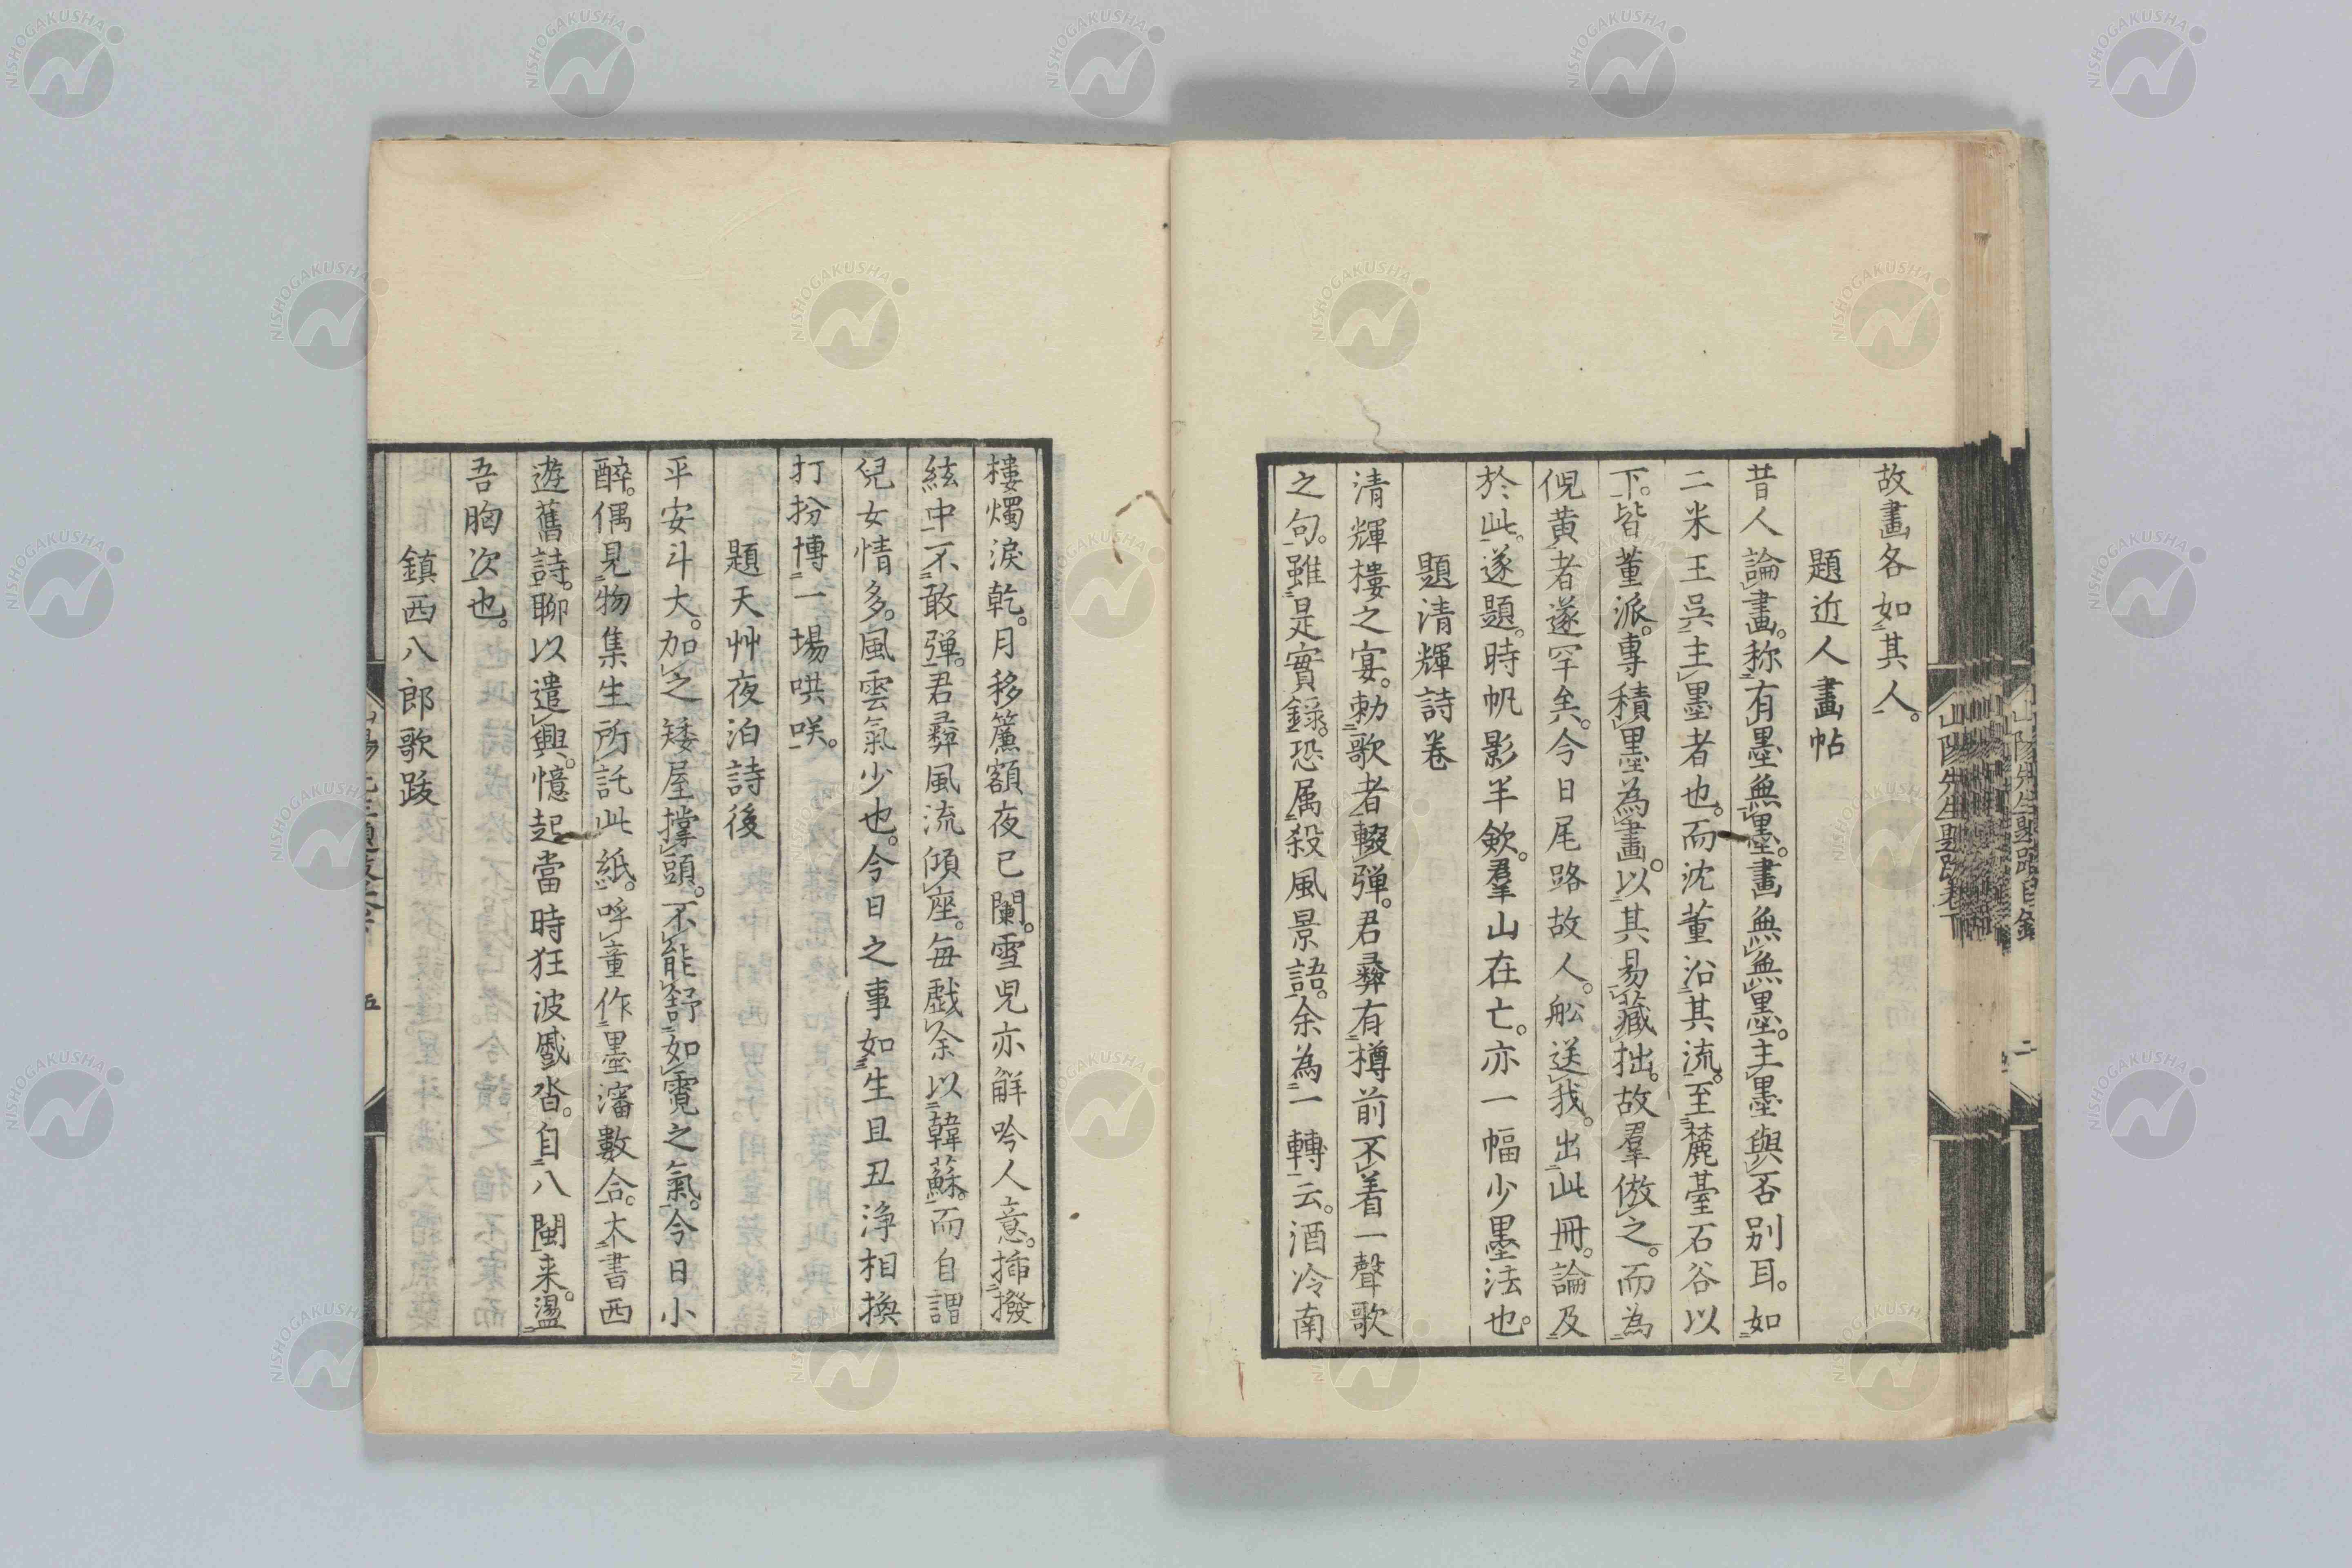 故畫各如其人。
題近人畫帖
昔人論畫。称有墨無墨。畫無無墨。主墨與否別耳。如
二米王吳主墨者也。而沈董沿其流。至麓臺石谷以
下。皆董派。專積墨為畫。以其易藏拙。故羣倣之。而為
倪黄者遂罕矣。今日尾路故人。舩送我。出此冊。論及
於此。遂題。時帆影半欹。羣山在亡。亦一幅少墨法也。
題清輝詩卷
清輝樓之宴。勅歌者輟弾。君彝有樽前不着一聲歌
之句。雖是實錄。恐属殺風景語。余為一轉云。酒冷南
樓燭淚乾。月移簾額夜已闌。雪児亦解吟人意。插撥
絃中不敢弾。君彝風流傾座。毎戯余以韓蘇。而自謂
兒女情多。風雲氣少也。今日之事如生且丑浄相換
打扮博一場哄咲。
題天艸夜泊詩後
平安斗大。加之矮屋撐頭。不能舒如霓之氣。今日小
醉。偶見物集生所託此紙。呼童作墨瀋數合。大書西
遊舊詩。聊以遣興。憶起當時狂波蹙沓。自八閩来。盪
吾胸次也。
鎮西八郎歌跋
山陽先生題跋卷下
五
山陽先生題跋目錄
二
NISHOGAKUSHA